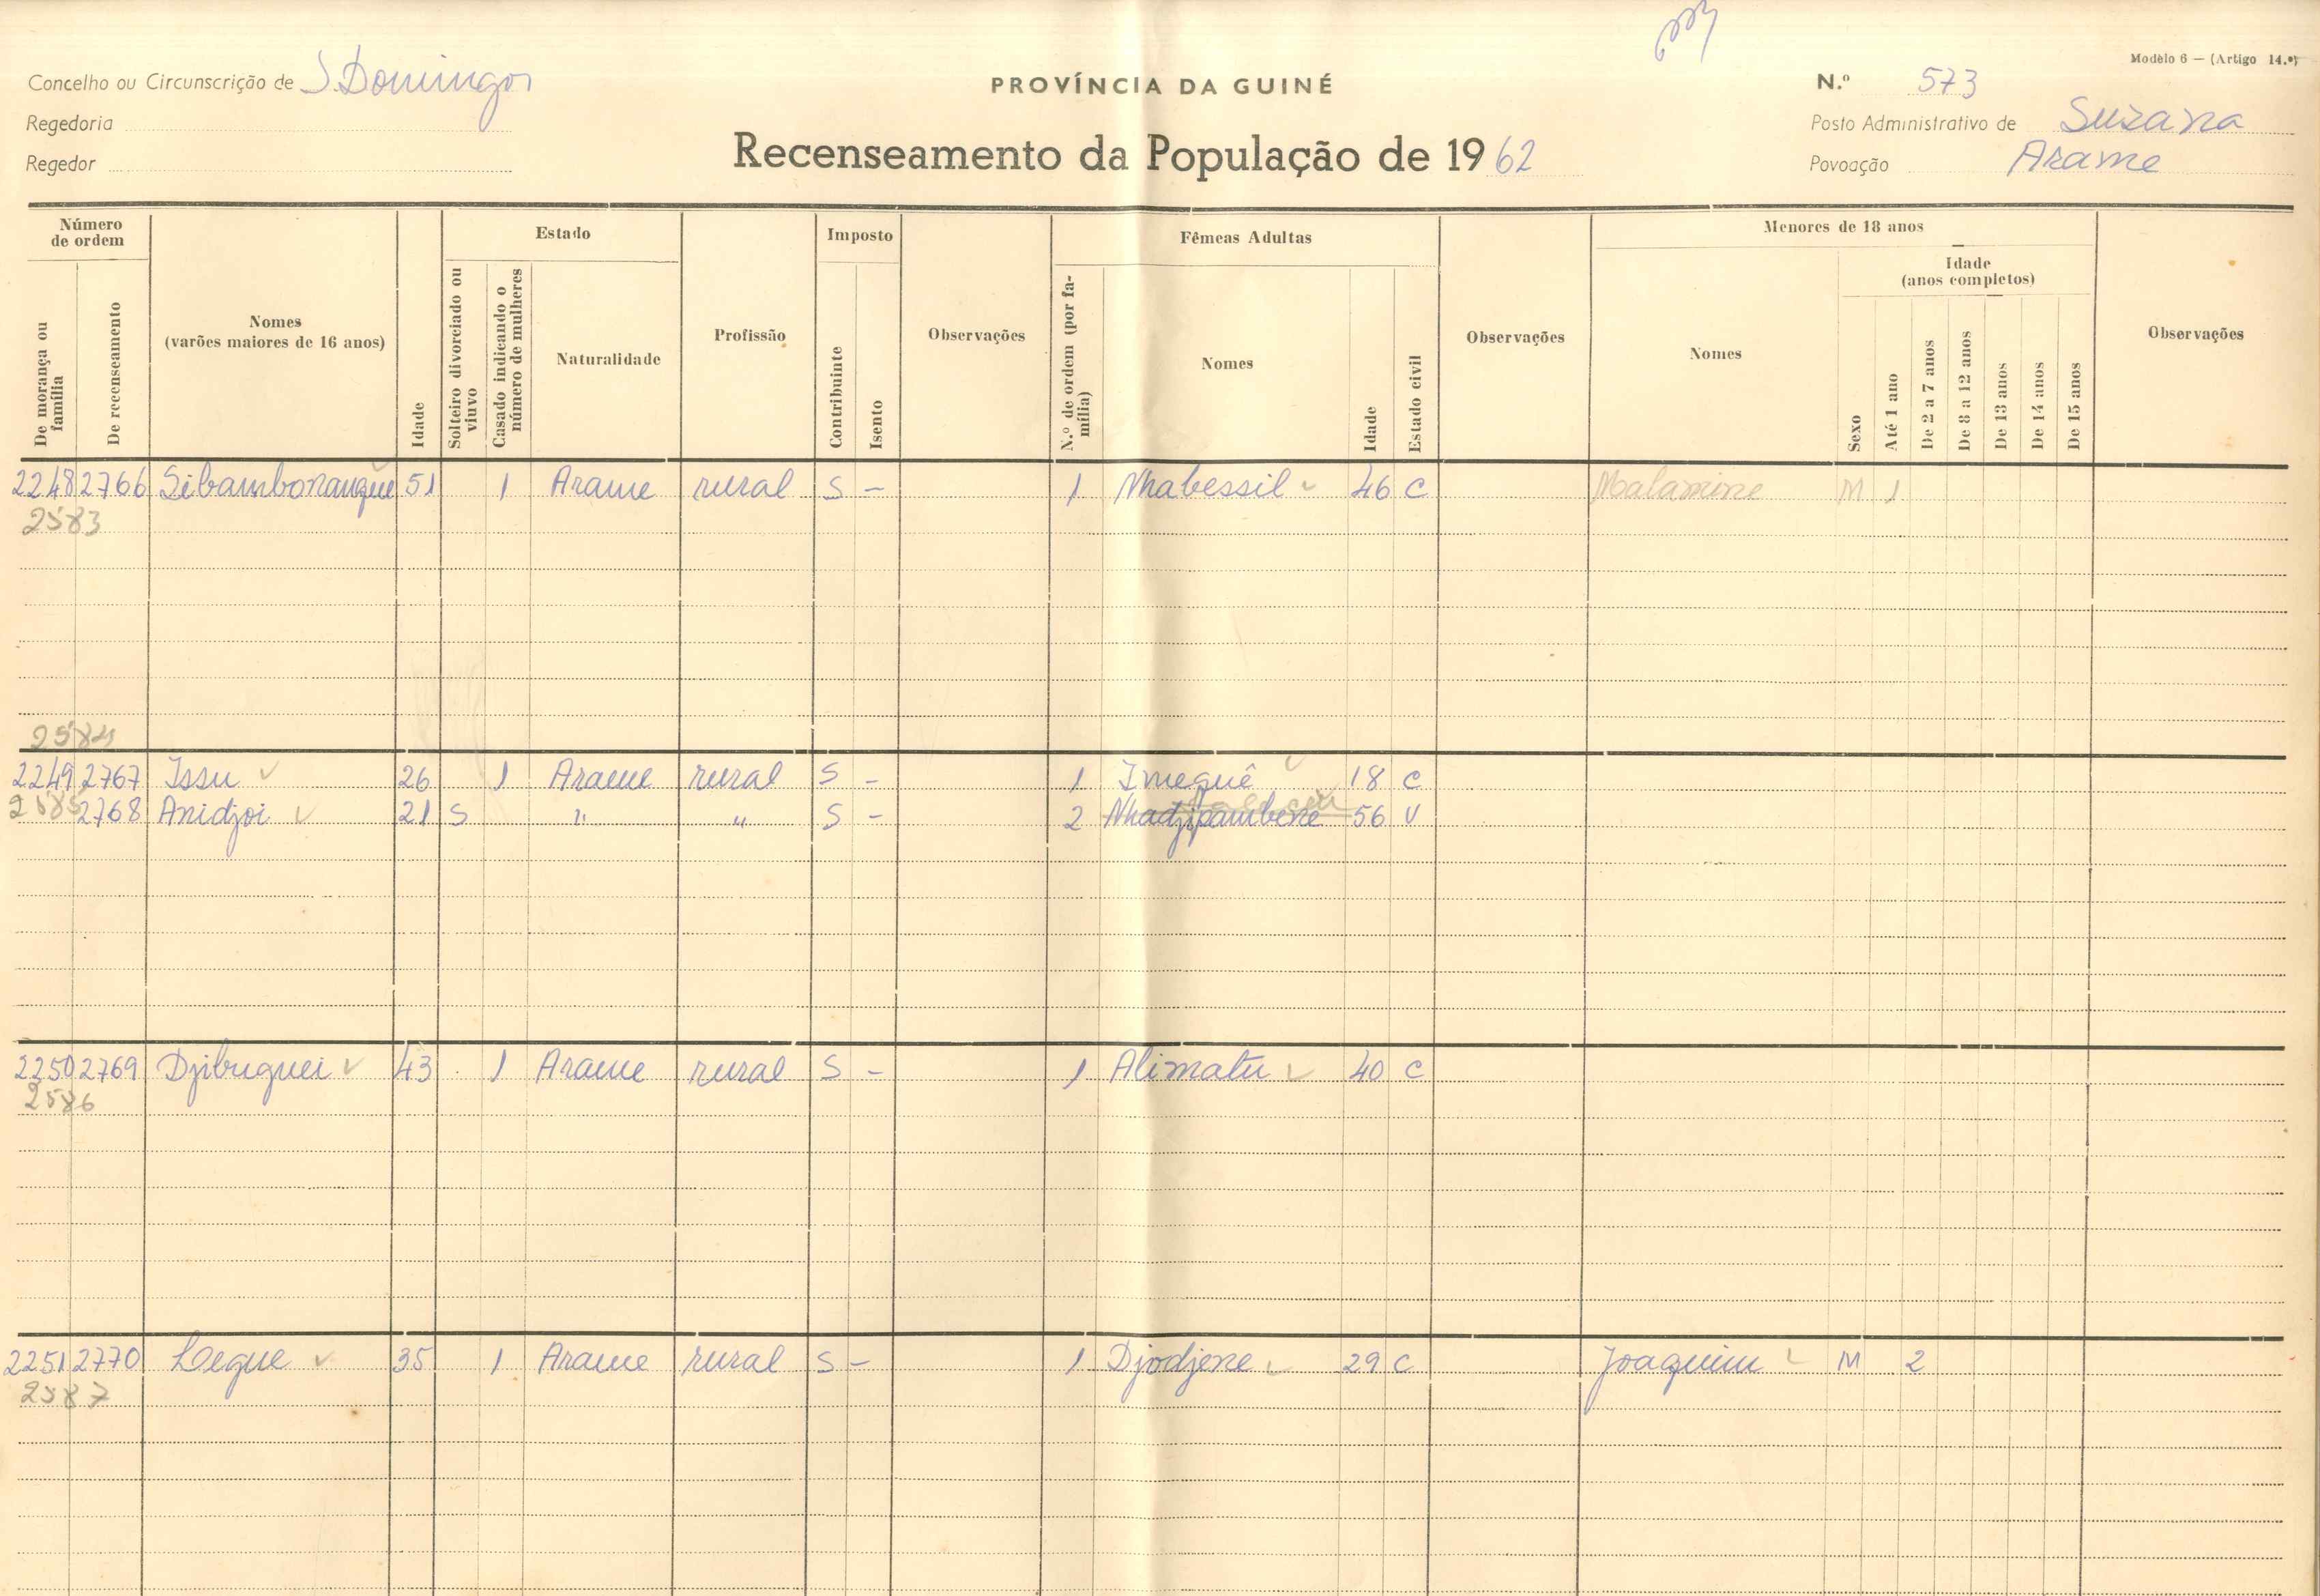 Modêlo 6 — (Artigo 14.º)
Concelho ou Circunscrição de S. Domingos
PROVÍNCIA DA GUINÉ
N.º 573
Regedoria
Posto Administrativo de Suzana
Regedor
Recenseamento da População de 1962
Povoação Arame
Número de ordem
De morança ou família
De recenseamento
Nomes (varões maiores de 16 anos)
Idade
Estado
Solteiro divorciado ou viuvo
Casado indicando o número de mulheres
Naturalidade
Profissão
Imposto
Contribuinte
Isento
Observações
Fêmeas Adultas
N.º de ordem (por família)
Nomes
Idade
Estado civil
Observações
Menores de 18 anos
Nomes
Sexo
Idade (anos completos)
Até 1 ano
De 2 a 7 anos
De 8 a 12 anos
De 13 anos
De 14 anos
De 15 anos
Observações
2248 2766 Sibambonangue 51 1 Arame rural S - 1 Nhabessil 46 C Malamine M 1
2583
2584
2249 2767 Issu 26 1 Arame rural S - 1 Imeguê 18 C
2585 2768 Anidjoi 21 S " " S - 2 Nhadjipambene 56 V
2250 2769 Djibuguei 43 1 Arame rural S - 1 Alimatu 40 C
2586
2251 2770 Legue 35 1 Arame rural S - 1 Djodjene 29 C Joaquim M 2
2587